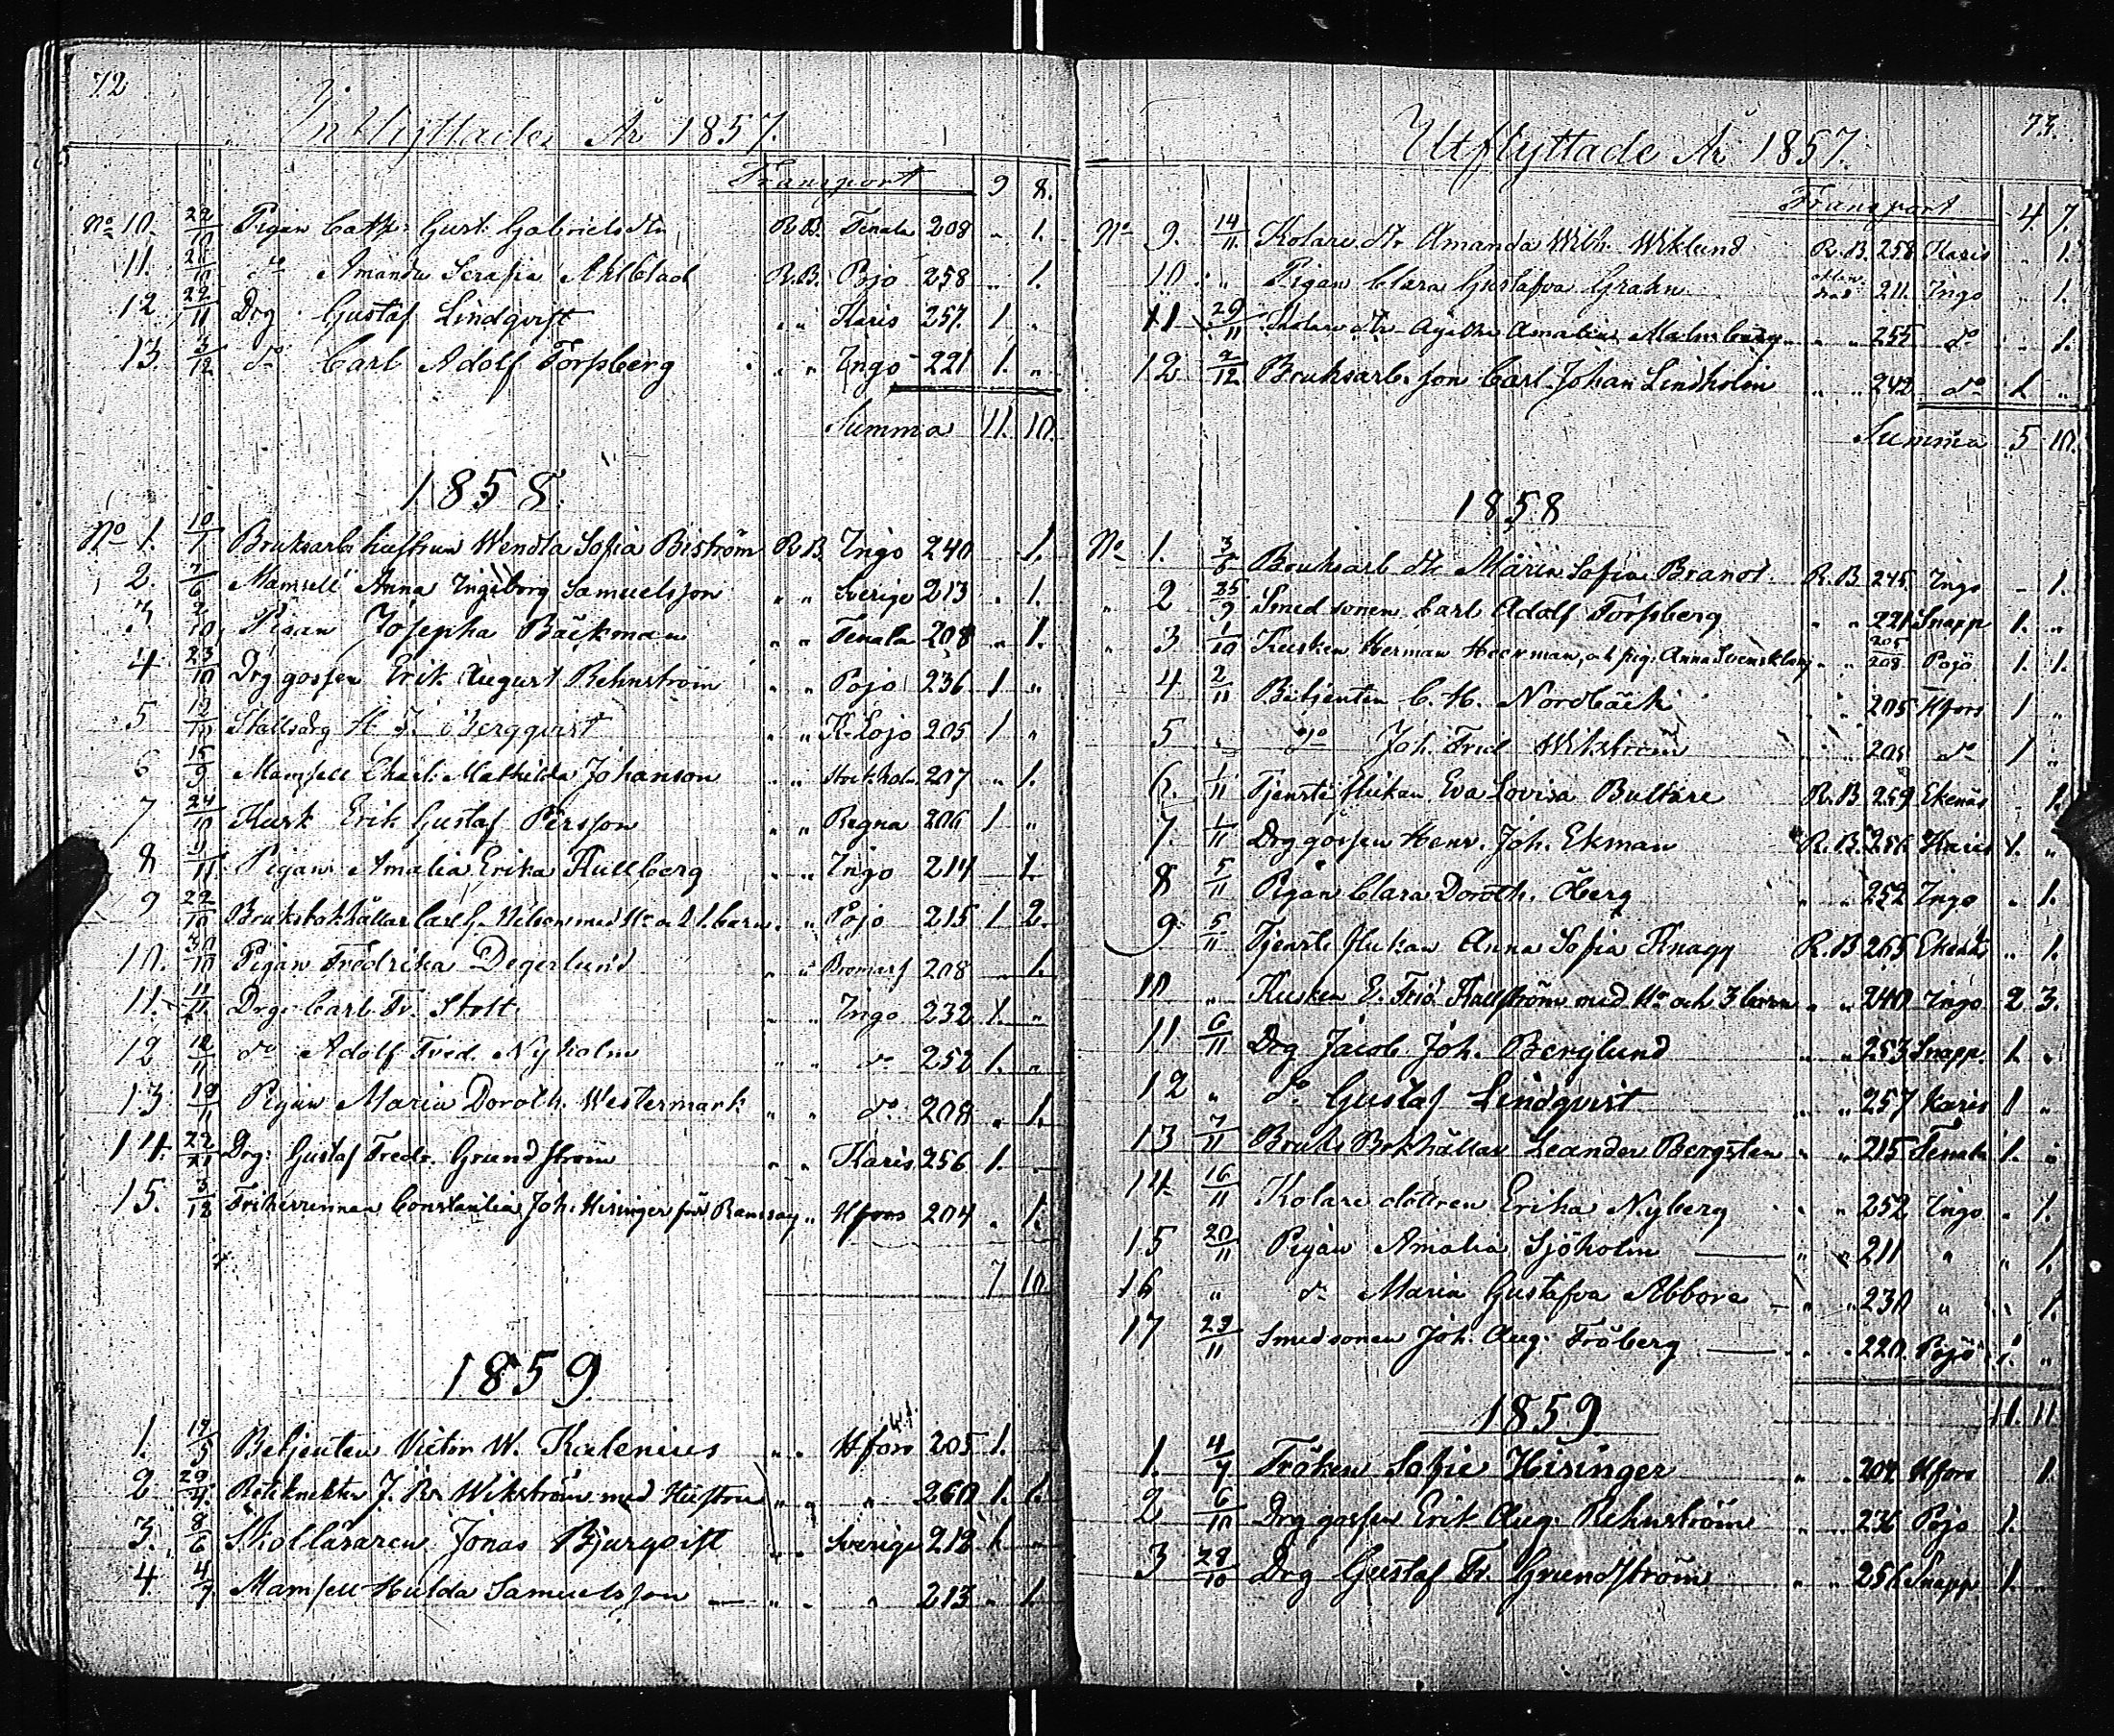 72
Inflyttade År 1857.
Transport 9 8.
No 10. 22/10 Pigan Cath: Gust. Gabrielsdtr R.B. Tenala 208 „ 1.
11. 21/10 do Amanda Serafia Ahlblad R.B. Pojo 258 „ 1.
12 22/11 Drg Gustaf Lindqvist „ „ Karis 257. 1 „
13. 3/12 do Carl Adolf Forssberg „ „ Ingo 221 1. „
Summa 11. 10.
1858.
No 1. 10/1 Bruksarb. hustrun Wendla Sofia Biström R.B. Ingo 240 1.
2. 7/6 Mamsell Anna Ingeborg Samuelsson „ „ Sverige 213 „ 1.
3 2/10 Pigan Josepha Bäckman „ „ Tenala 208 „ 1.
4 23/10 Drg gossen Erik August Rehnström „ „ Pojo 236 1 „
5 12/10 Stalldrg H. J. Bergqvist „ „ K. Lojo 205 1 „
6 15/9 Mamsell Charl. Mathilda Johanson „ „ Stockholm 207 „ 1.
7 24/10 Kusk Erik Gustaf Persson „ „ Regna 206 1 „
8 11/11 Pigan Amalia Erika Kullberg „ „ Ingo 214 1.
9 22/10 Bruksbokhållar Carl G. Nilson med Hu o 1 barn „ „ Pojo 215 1 2.
10. 30/10 Pigan Fredrika Degerlund „ „ Bromarf 208 „ 1.
11. 11/11 Drg: Carl Fr. Stolt „ „ Ingo 232 1. „
12 12/11 do Adolf Fred. Nyholm „ „ do 252 1. „
13 19/11 Pigan Maria Doroth. Westermark „ „ do 208 „ 1.
14. 22/11 Drg: Gustaf Fredr. Grundström „ „ Karis 256 1. „
15. 3/12 Friherrinnan Constantia Joh. Hisinger född Ramsay „ Hfors 204 „ 1.
7 10
1859.
1. 19/5 Betjenten Victor W. Kalenius „ „ Hfors 205 1.
2 29/4 J. Rr. Wikström med Hustru „ „ „ 260 1. 1.
3. 8/6 Skolläraren Jonas Bjurqvist „ „ Sverige 212 1 „
4. 4/7 Mamsell Hulda Samuelsson „ „ „ 213 „ 1.
73.
Utflyttade År 1857.
Transport 4. 7.
No 9. 14/11 Kolare dtr Amanda Wilh. Wiklund R.B. 258 Karis „ 1.
10 „ Pigan Clara Gustafva Grahn 211. Ingo „ 1.
11 29/11 Kolare dtr Agatha Amalia Malmberg „ „ 255 do „ 1.
12 2/12 Bruksarb. son Carl Johan Lindholm „ „ 242 do 1 „
Summa 5 10.
1858
No 1. 3/5 Bruksarb dtr Maria Sofia Brandt R.B. 245. Ingo „ 1.
„ 2 25/9 Smedsonen Carl Adolf Forssberg „ „ 221 Snapp 1. „
„ 3 1/10 Kusken Herman Heerman, och pig. Anna Svenskberg „ „ 205 208 Pojo 1. 1.
4 2/11 Betjenten C. H. Nordbäck „ „ 205 Hfors 1 „
5 „ do Joh. Fred Wikström „ „ 205 do 1 „
6. 1/11 Tjenste flickan Eva Lovisa Bultare R.B 259 Ekenäs „ 1.
7. 1/11 Drg gossen Henr. Joh. Ekman R.B. 256 Karis 1. „
8 5/11 Pigan Clara Doroth. Öberg „ „ 252 Ingo „ 1.
9. 5/11 Tjenste flickan Anna Sofia Knagg R.B 265 Ekenäs „ 1.
10 „ Kusken E. Fred Kullström med Hu och 3 barn „ „ 240 Ingo 2 3.
11 6/11 Drg Jacob Joh. Berglund „ „ 253 Snapp. 1 „
12 „ do Gustaf Lindqvist „ „ 257 Karis 1 „
13 7/11 Bruks Bokhållar Leander Bergsten „ „ 215 Tenala 1. „
14. 16/11 Kolare dottren Erika Nyberg „ „ 252 Ingo „ 1.
15 20/11 Pigan Amalia Sjöholm „ „ 211 „ „ 1.
16 „ do Maria Gustafva Abbore „ „ 230 „ „ 1.
17 23/11 Smedsonen Joh. Aug. Fröberg „ „ 220. Pojo 1. „
11. 11
1859.
1. 4/7 Fröken Sofie Hisinger „ „ 204 Hfors 1
2 6/10 Drg gossen Erik Aug. Rehnström „ „ 236 Pojo 1.
3 28/10 Drg Gustaf Fr. Grundström „ „ 256 Snapp 1. „